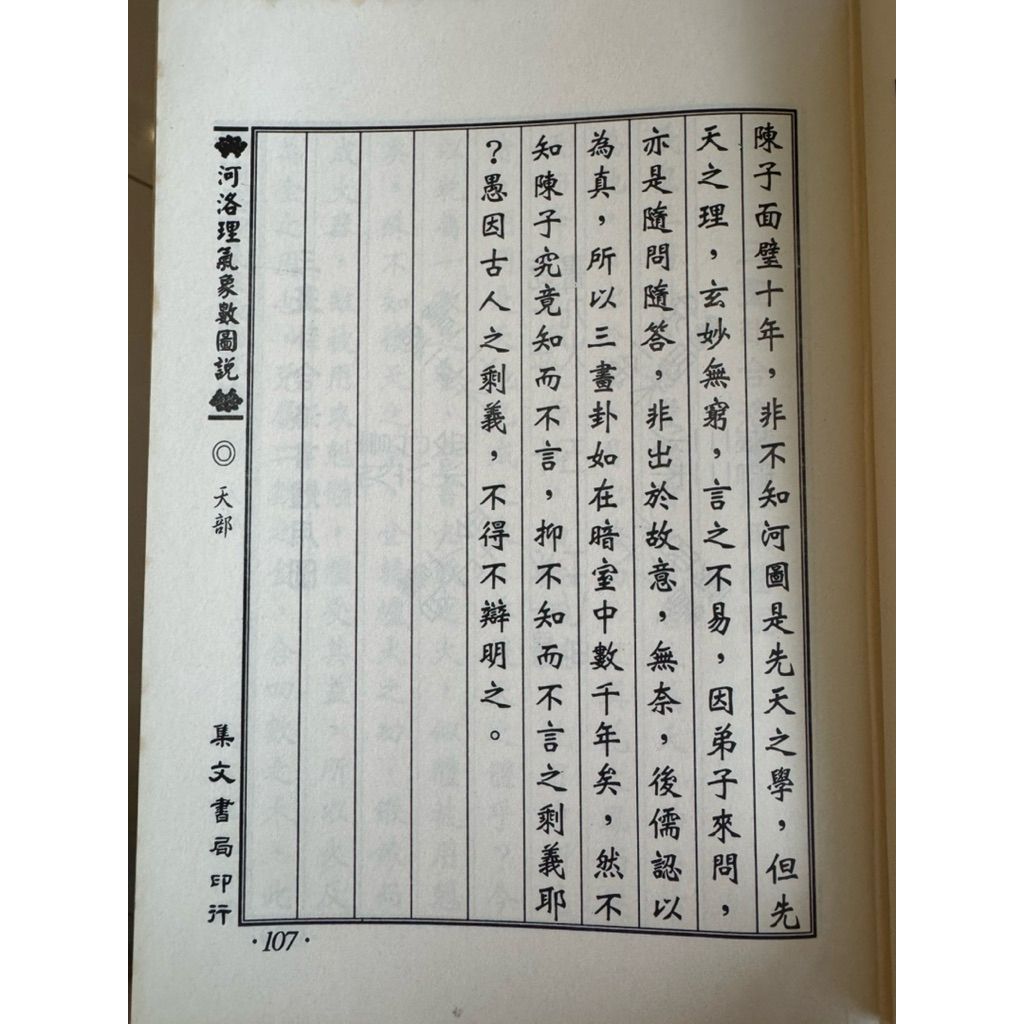 陳子面壁十年，非不知河圖是先天之學，但先
天之理，玄妙無窮，言之不易，因弟子來問，
亦是隨問隨答，非出於故意，無奈，後儒認以
為真，所以三畫卦如在暗室中數千年矣，然不
知陳子究竟知而不言，抑不知而不言之剩義耶
？愚因古人之剩義，不得不辯明之。
河洛理氣象數圖說
◎天部
集文書局印行
·107·